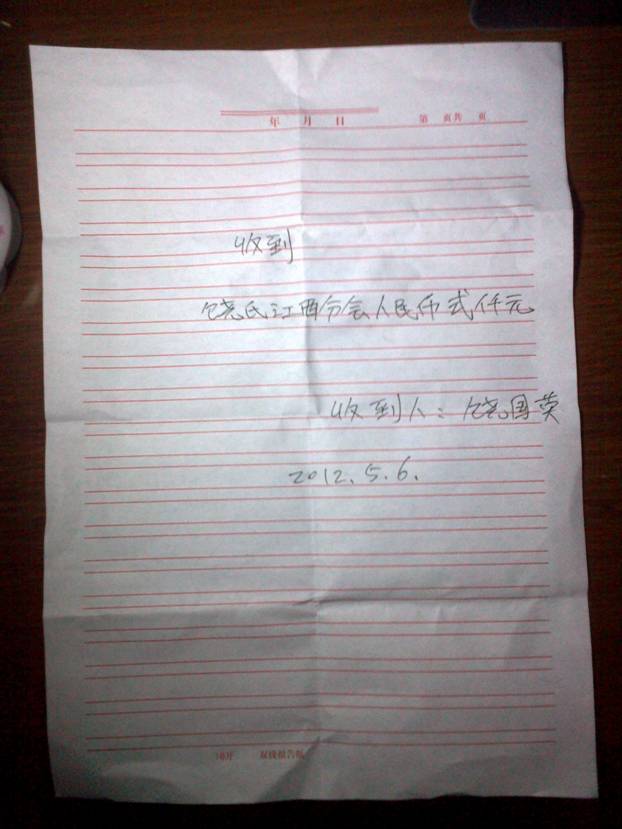 年 月 日
第 页共 页
收到
饶氏江西分会人民币弍仟元
收到人：饶国英
2012.5.6.
16开 双线报告纸